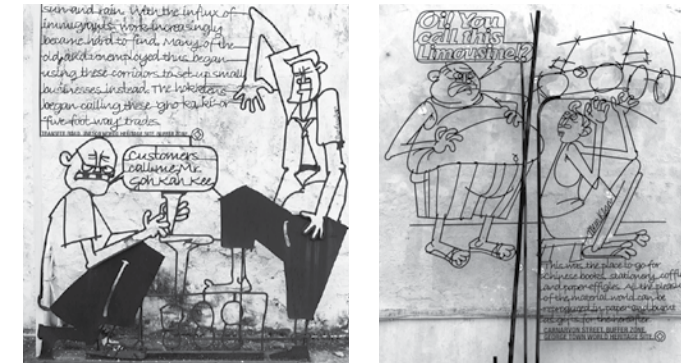 sun and rain. With the influx of
immigrants, work increasingly
became hard to find. Many of the
old and unemployed thus began
using these corridors to set up small
businesses instead. The hokkiens
began calling these 'gho kaki' or
five foot way trades.
Customers
call me Mr.
Goh Kah Kee
Oi! You
call this
Limousine!?
This was the place to go for
Chinese books, stationery, coffins
and paper effigies. All the pleasures
of the material world can be
reproduced in paper and burnt
for the hereafter.
CARNARVON STREET, BUFFER ZONE,
GEORGE TOWN WORLD HERITAGE SITE